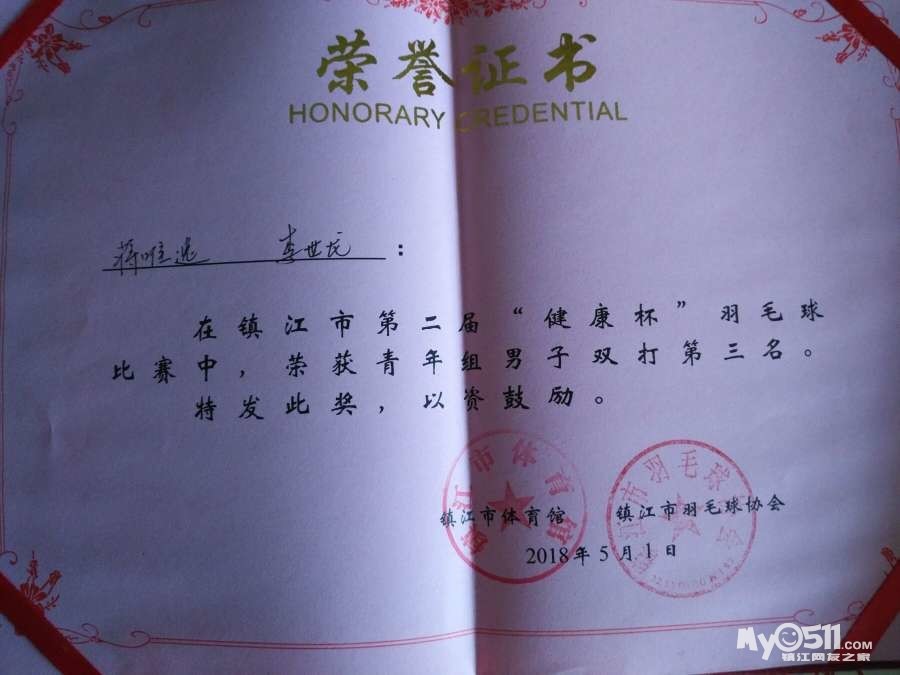 荣誉证书
HONORARY CREDENTIAL
李世龙：
在镇江市第二届“健康杯”羽毛球
比赛中，荣获青年组男子双打第三名。
特发此奖，以资鼓励。
镇江市体育馆 镇江市羽毛球协会
2018年5月1日
My0511.com
镇江网友之家